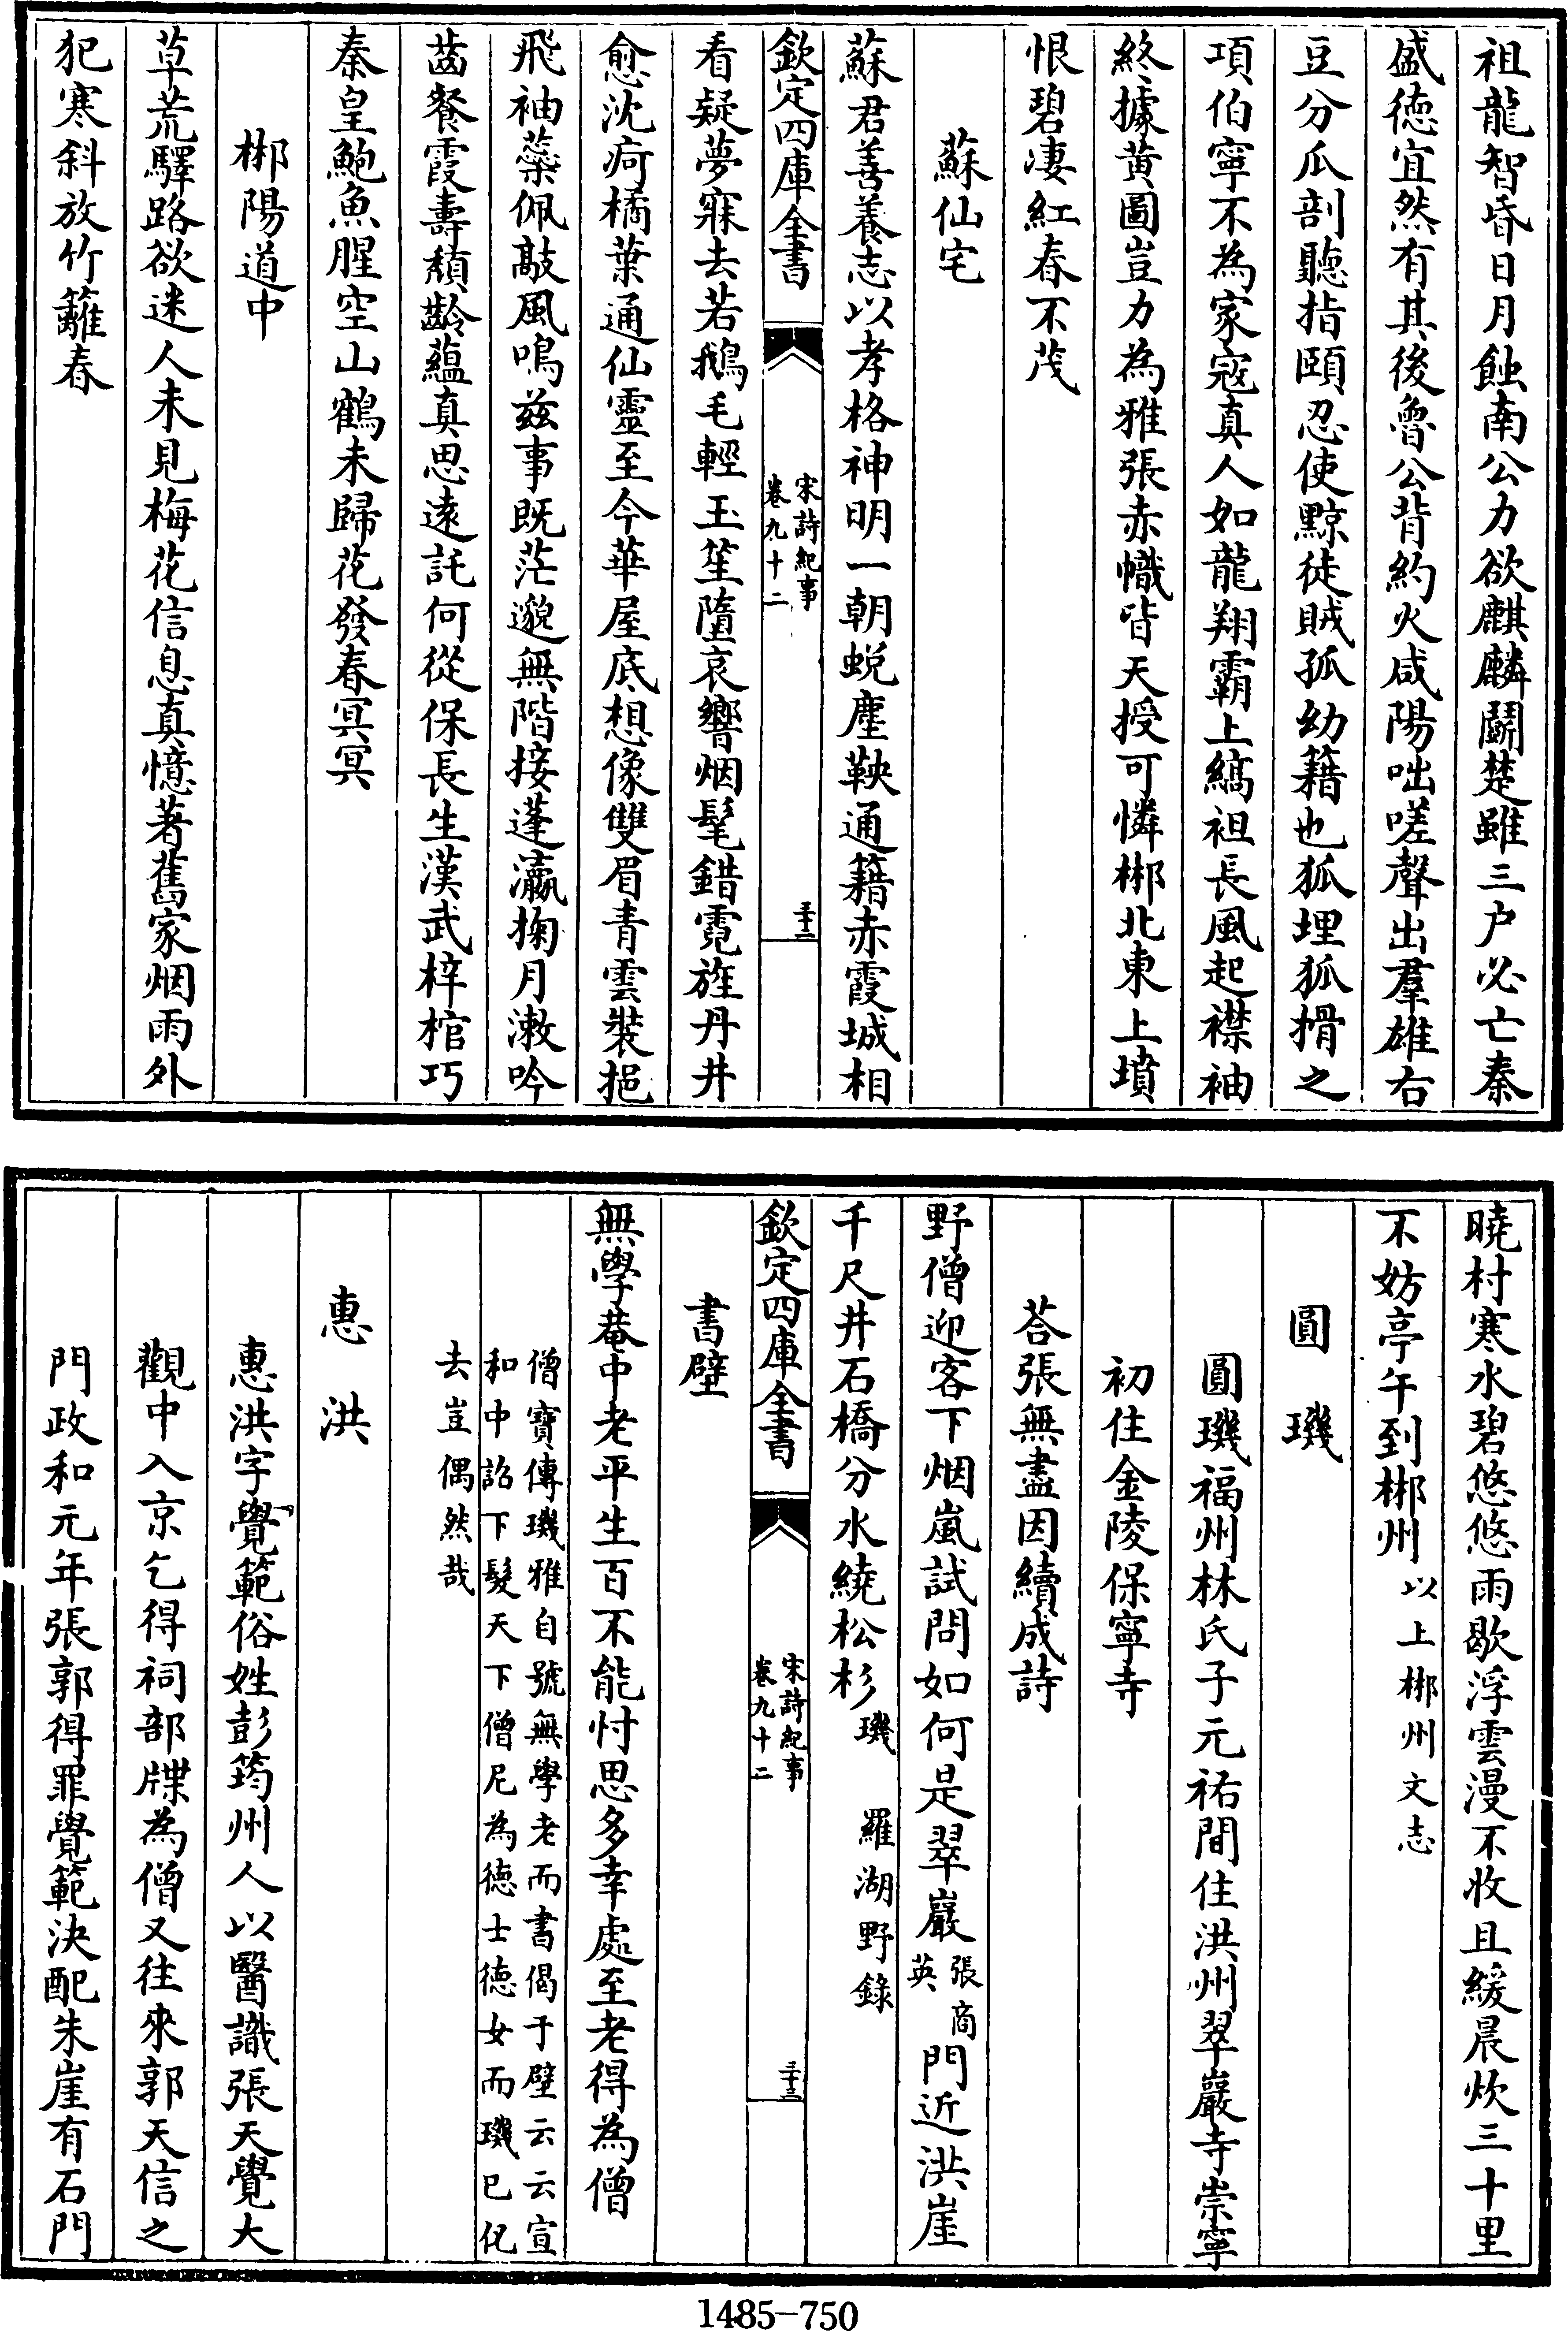 祖龍智昏日月蝕南公力欲麒麟鬭楚雖三户必亡秦
盛德宜然有其後魯公背約火咸陽咄嗟聲出羣雄右
豆分瓜剖聽指頤忍使黥徒賊孤幼籍也狐埋狐搰之
項伯寧不為家寇真人如龍翔霸上縞袒長風起襟袖
終據黄圖豈力為雅張赤幟皆天授可憐郴北東上墳
恨碧凄紅春不茂
蘇仙宅
蘇君善養志以孝格神明一朝蜕塵鞅通籍赤霞城相
欽定四庫全書
宋詩紀事
卷九十二
三十二
看疑夢寐去若鵝毛輕玉笙墮哀響烟髦錯霓旌丹井
愈沈疴橘葉通仙靈至今華屋底想像雙眉青雲裝挹
飛袖蘂佩敲風鳴兹事既茫邈無階接蓬瀛掬月漱吟
齒餐霞壽頽齡藴真思遠託何從保長生漢武梓棺巧
秦皇鮑魚腥空山鶴未歸花發春冥冥
郴陽道中
草荒驛路欲迷人未見梅花信息真憶著舊家烟雨外
犯寒斜放竹籬春
曉村寒水碧悠悠雨歇浮雲漫不收且緩晨炊三十里
不妨亭午到郴州以上郴州文志
圓璣
圓璣福州林氏子元祐間住洪州翠巖寺崇寧
初住金陵保寧寺
荅張無盡因續成詩
野僧迎客下烟嵐試問如何是翠巖張商英門近洪崖
千尺井石橋分水繞松杉璣 羅湖野錄
欽定四庫全書
宋詩紀事
卷九十二
三十三
書壁
無學菴中老平生百不能忖思多幸處至老得為僧
僧寶傳璣雅自號無學老而書偈于壁云云宣
和中詔下髮天下僧尼為德士德女而璣已化
去豈偶然哉
惠洪
惠洪字覺範俗姓彭筠州人以醫識張天覺大
觀中入京乞得祠部牒為僧又往來郭天信之
門政和元年張郭得罪覺範決配朱崖有石門
1485-750